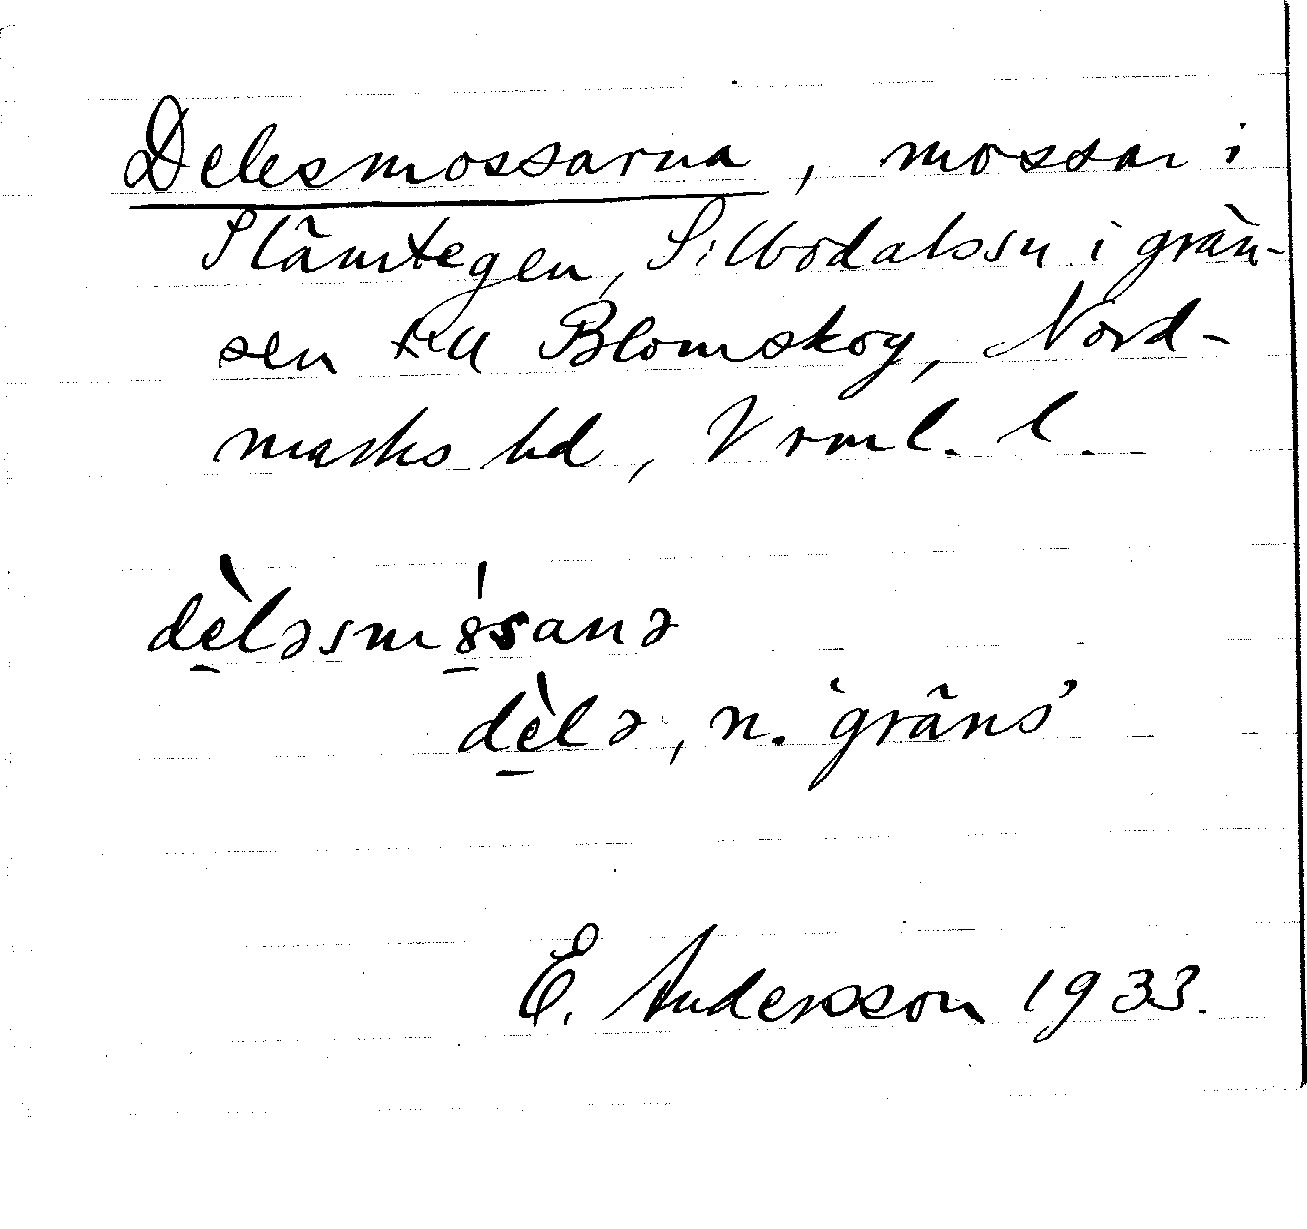 Delesmossarna, mossar i
Slämtegen, Silbodalssn i grän-
sen till Blomskog, Nord-
marks hd, Vrml. l.
dè̱ləsmó̱sanə
dè̱lə, n. 'gräns'
E. Andersson 1933.